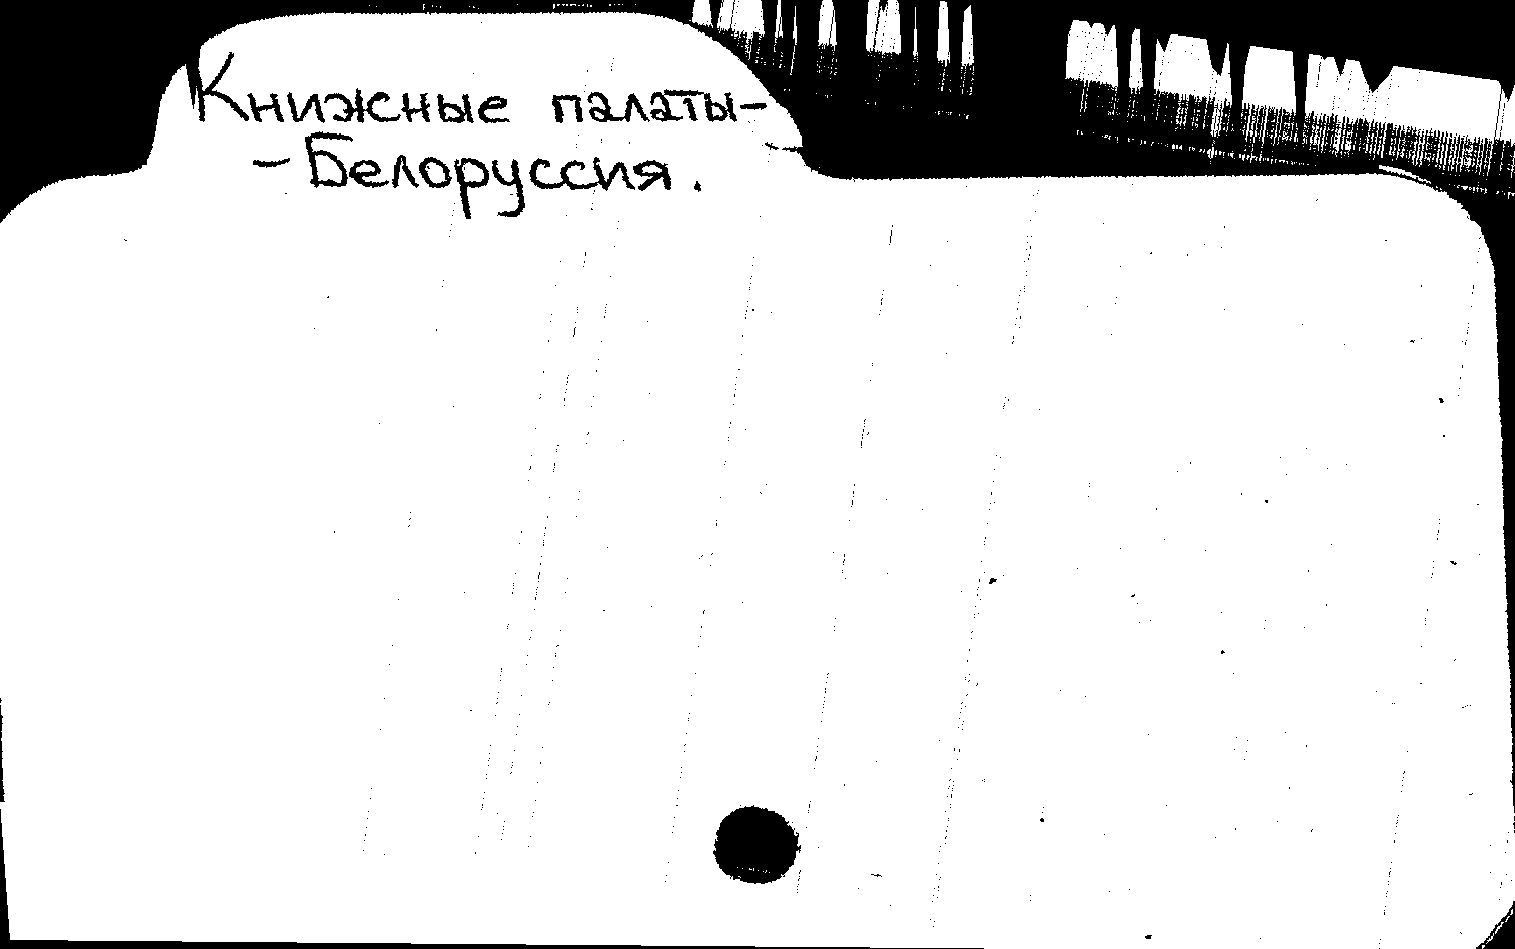 Книжные палаты-
- Белоруссия.